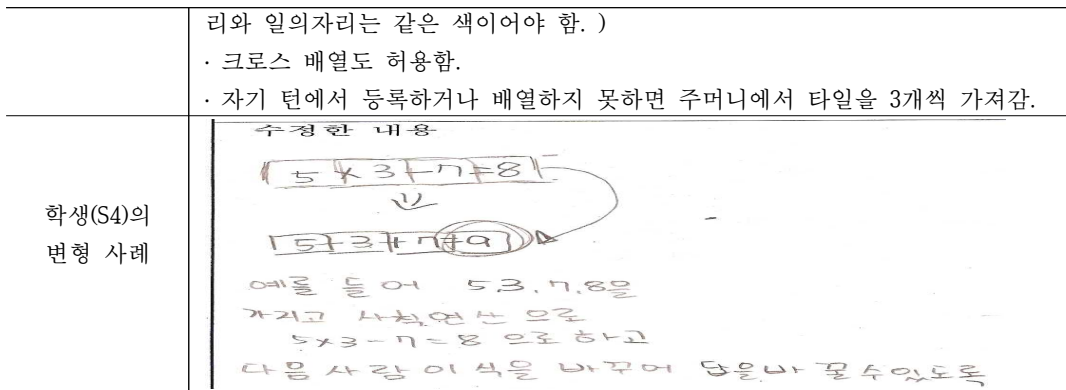 리와 일의자리는 같은 색이어야 함. )
· 크로스 배열도 허용함.
· 자기 턴에서 등록하거나 배열하지 못하면 주머니에서 타일을 3개씩 가져감.
학생(S4)의
변형 사례
수정한 내용
5×3-7=8
예를 들어 5.3.7.8을
가지고 사칙연산으로
5×3-7=8 으로 하고
다음 사람이 식을 바꾸어 답을 바꿀 수 있도록